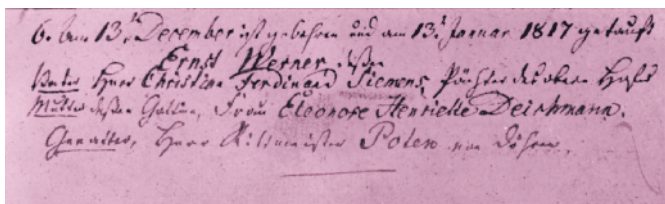 6. Am 13t December ist gebohren und am 13t Januar 1817 getauft
Ernst Werner, dessen
Vater Herr Christian Ferdinand Siemens, Pächter des obern Hofes
Mutter dessen Gattin, Frau Eleonore Henriette Deichmann.
Gevatter, Herr Rittmeister Poten von Döhren.